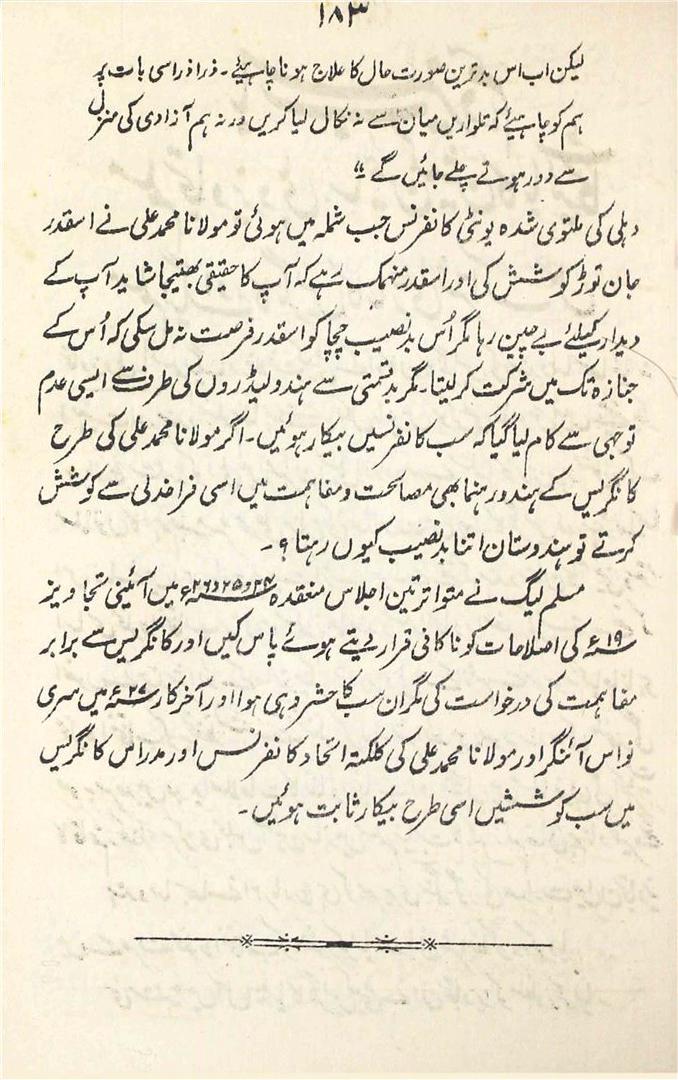 ۱۸۳
لیکن اب اس بدترین صورت حال کا علاج ہونا چاہیئے۔ ذرا ذراسی بات پر
ہم کو چاہیئے کہ تلواریں میان سے نہ نکال لیا کریں ورنہ ہم آزادی کی منزل
سے دور ہوتے چلے جائیں گے"
دہلی کی ملتوی شدہ یونٹی کانفرنس جب شملہ میں ہوئی تو مولانا محمد علی نے اسقدر
جان توڑ کوشش کی اور اسقدر منہمک رہے کہ آپ کا حقیقی بھتیجا شاید آپ کے
دیدار کیلئے بے چین رہا مگر اُس بدنصیب چچا کو اسقدر فرصت نہ مل سکی کہ اُس کے
جنازہ تک میں شرکت کر لیتا۔ مگر بدقسمتی سے ہندو لیڈروں کی طرف سے ایسی عدم
توجہی سے کام لیا گیا کہ سب کانفرنسیں بیکار ہوئیں۔ اگر مولانا محمد علی کی طرح
کانگریس کے ہندو رہنما بھی مصالحت و مفاہمت میں اسی فراخدلی سے کوشش
کرتے تو ہندوستان اتنا بدنصیب کیوں رہتا؟۔
مسلم لیگ نے متواتر تین اجلاس منعقدہ ۲۴ و ۲۵ و ۲۶ء میں آئینی تجاویز
۱۹ء کی اصلاحات کو ناکافی قرار دیتے ہوئے پاس کیں اور کانگریس سے برابر
مفاہمت کی درخواست کی مگر ان سب کا حشر وہی ہوا اور آخرکار ۲۷ء میں سری
نواس آئنگر اور مولانا محمد علی کی کلکتہ اتحاد کانفرنس اور مدراس کانگریس
میں سب کوششیں اسی طرح بیکار ثابت ہوئیں۔